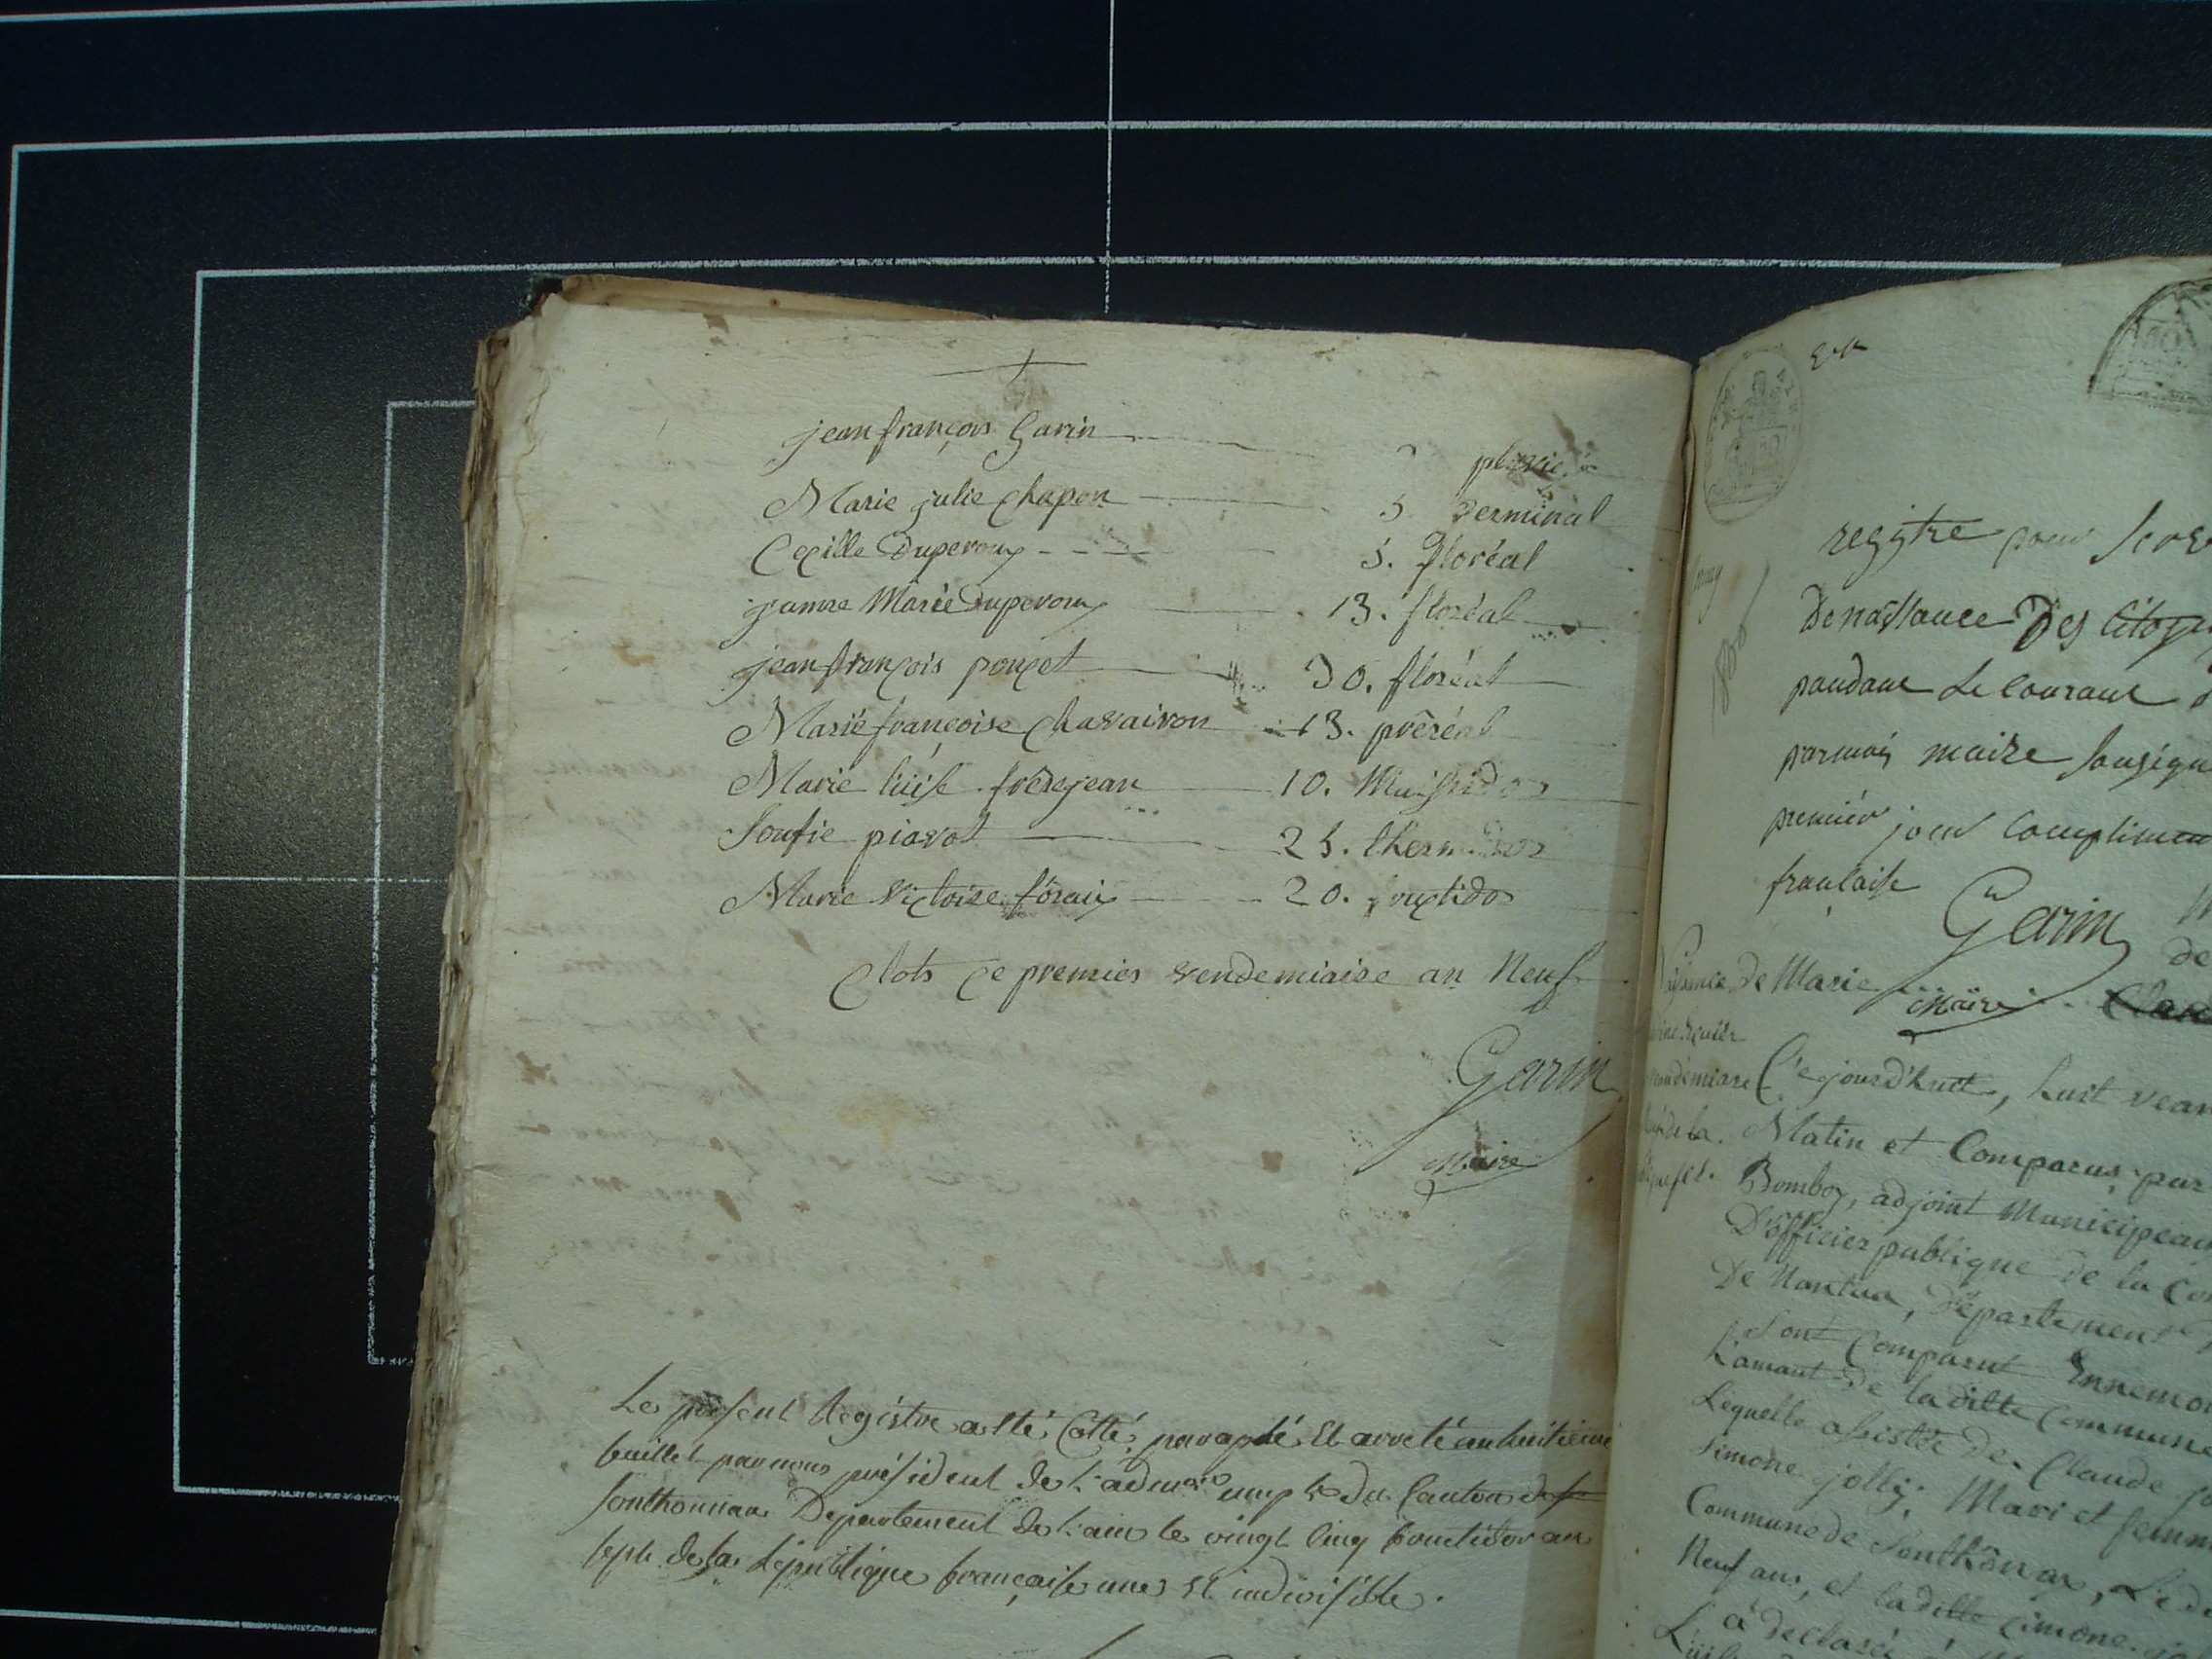 jean françois Garin
Marie julie Chapon 5 Germinal
Cecille Duperoux 5. floréal
jeanne Marie Duperoux 13. floréal
jean françois ponçet 30. floréal
Marie françoise Chavairon 13. préréal
Marie luise frêrejean 10. Messidor
Soufie piavot 25. thermidor
Marie victoire föraix 20. fructidor
Clots Ce premier vendemiaire an Neuf
Garin
Maire
Le présent Registre a été Cotté, paraphé et arreté au huitieme
feuillet par nous président de l'adm.on du Canton de
Sonthonnax Departement de l'ain le vingt Cinq fructidor an
sept de la République française une et indivisible.
registre pour
De naissance Des Citoy
pandant Le Courant
par moy maire Sousign
premier jour Complimen
francaise
Garin
Maire
De Marie
Ce jourd'huit, huit
Matin et Comparus par
Bomboy, adjoint Municipeau
D'officier publique de la
De Nantua, Département
Sont Comparut Ennemon
de la ditte Commune
Lequelle assistée de Claude
Simone jolly, Mari et femm
Commune de Sonthônax,
Neuf ans, et la ditte Cimone
à declaré